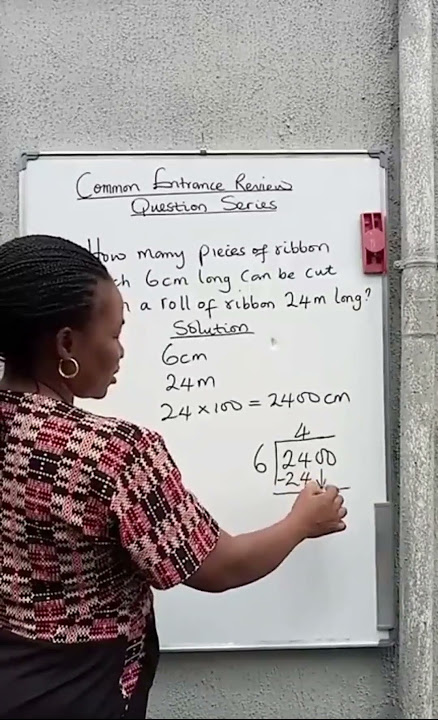 Common Entrance Review
Question Series
How many pieces of ribbon
6cm long can be cut
a roll of ribbon 24m long?
Solution
6cm
24m
24 × 100 = 2400 cm
4
6 2400
-24↓